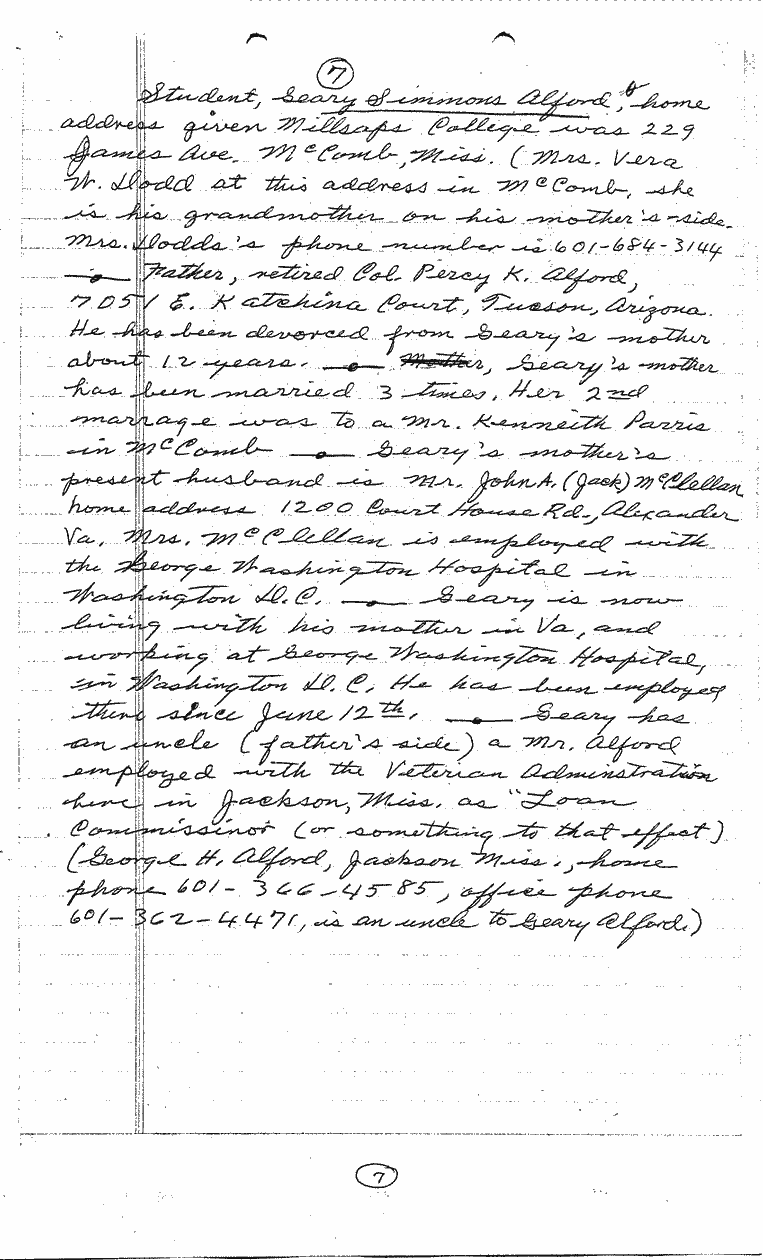 7
Student, Geary Simmons Alford, home
address given Millsaps College was 229
James Ave. McComb, Miss. (Mrs. Vera
W. Dodd at this address in McComb, she
is his grandmother on his mother's-side.
Mrs. Dodds's phone number is 601-684-3144
Father, retired Col. Percy K. Alford,
7051 E. Katchina Court, Tucson, Arizona.
He has been devorced from Geary's mother
about 12 years. Mother, Geary's mother
has been married 3 times. Her 2nd
marrage was to a Mr. Kenneith Parris
in McComb Geary's mother's
present husband is Mr. John A. (Jack) McClellan
home address 1200 Court House Rd., Alexander
Va. Mrs. McClellan is employed with
the George Washington Hospital in
Washington D.C. Geary is now
living with his mother in Va, and
working at George Washington Hospital,
in Washington D.C. He has been employed
there since June 12th. Geary has
an uncle (father's side) a Mr. Alford
employed with the Veterian Adminstration
here in Jackson, Miss. as "Loan
Commissinor (or something to that effect)
(George H. Alford, Jackson Miss., home
phone 601-366-4585, office phone
601-362-4471, is an uncle to Geary Alford.)
7